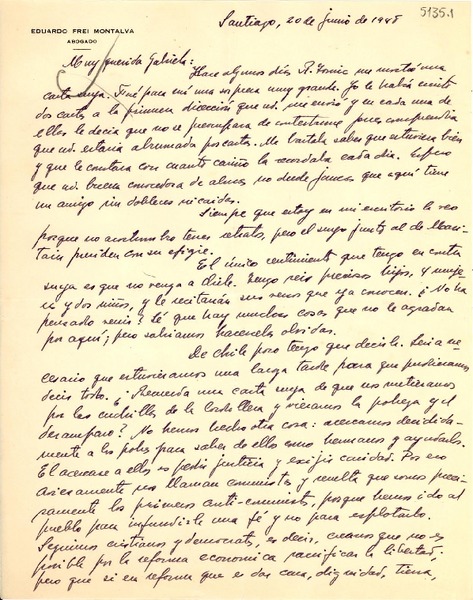 5135.1
Santiago, 20 de junio de 1948
EDUARDO FREI MONTALVA
ABOGADO
Muy querida Gabriela:
Hace algunos días R. Tomic me mostró una
carta suya. Fué para mí una sorpresa muy grande. Yo le había escrito
dos cartas a la primera dirección que ud. me envió y en cada una de
ellas le decía que no se preocupara de contestarme pues comprendía
que ud. estaría abrumada por cartas. Me bastaba saber que estuviera bien
y que le constara con cuanto cariño la recordaba cada día. Espero
que ud. buena conocedora de almas no dude jamás que aquí tiene
un amigo sin dobleces ni caídas.
Siempre que estoy en mi escritorio la veo
porque no acostumbro tener retratos, pero el suyo junto al de Mari-
tain presiden con su efigie.
El único sentimiento que tengo es contra
suya es que no venga a Chile. Tengo seis preciosos hijos,
y dos niños, y le recitarán sus versos que ya conocen. ¿No ha
pensado venir? Sé que hay muchas cosas que no le agradan
por aquí; pero sabríamos hacerselas olvidar.
De Chile poco tengo que decirle. Sería ne-
cesario que estuvieramos una larga tarde para que pudieramos
decir todo. ¿Recuerda una carta suya de que nos metieramos
por las cuchillas de la Cordillera y vieramos la pobreza y el
desamparo? No hemos hecho otra cosa: acercarnos decidida-
mente a los pobres para saber de ellos como hermanos y ayudarlos.
El acercarse a ellos es pedir justicia y exigir caridad. Por eso
 nos llaman comunistas y resulta que somos preci-
samente los primeros anti-comunistas, porque hemos ido al
pueblo para infundirle una fé y no para explotarlo.
Seguimos cristianos y democratas, es decir, creemos que no es
posible por la reforma economica sacrificar la libertad,
pero que sin reforma que es dar casa, dignidad, tierra,